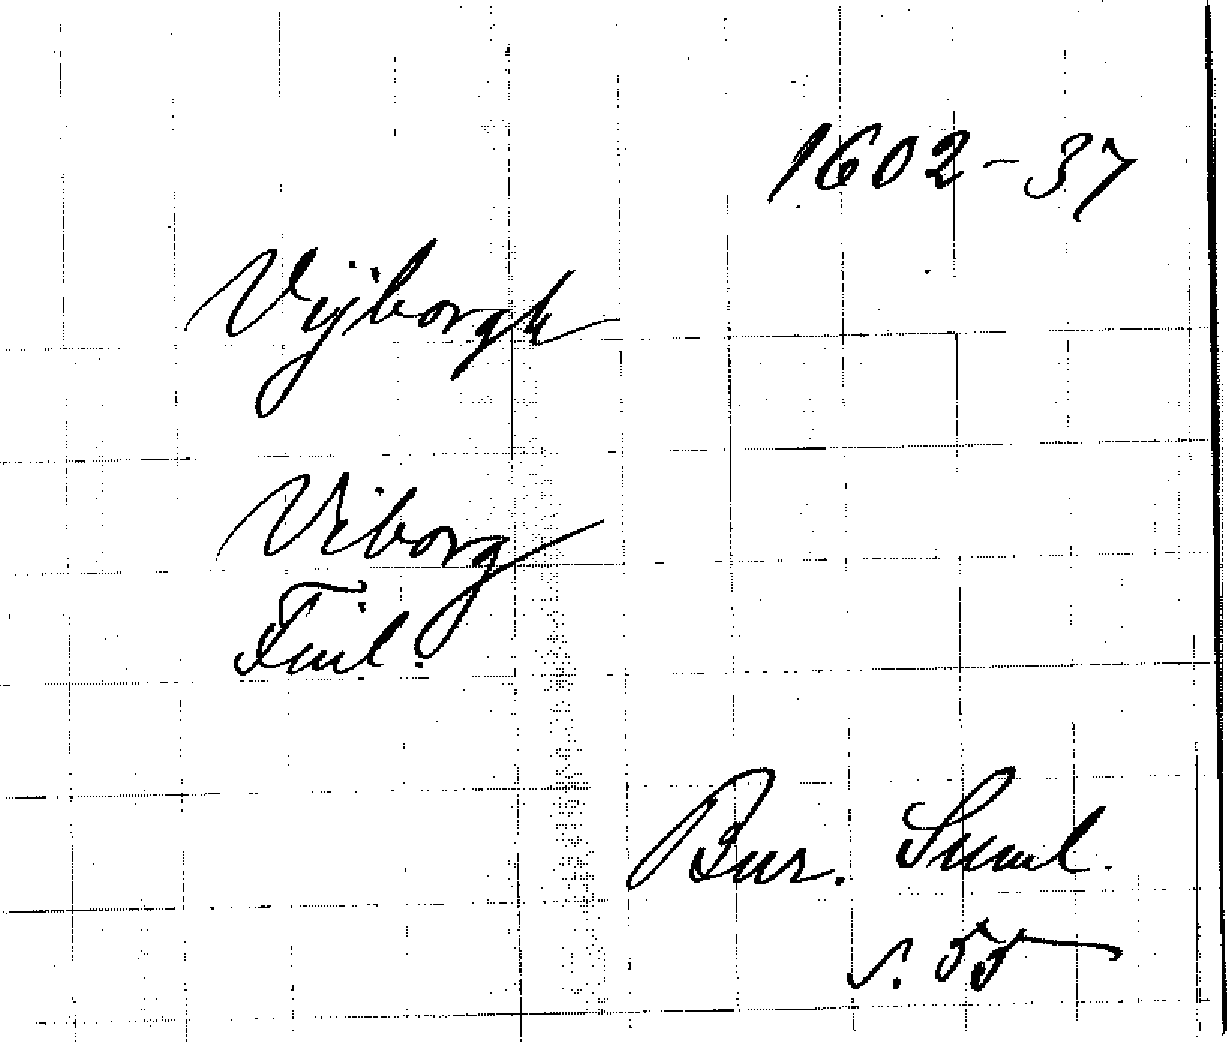 1602-37
Vijborgh
Viborg
Finl.
Bur. Suml.
s. 55